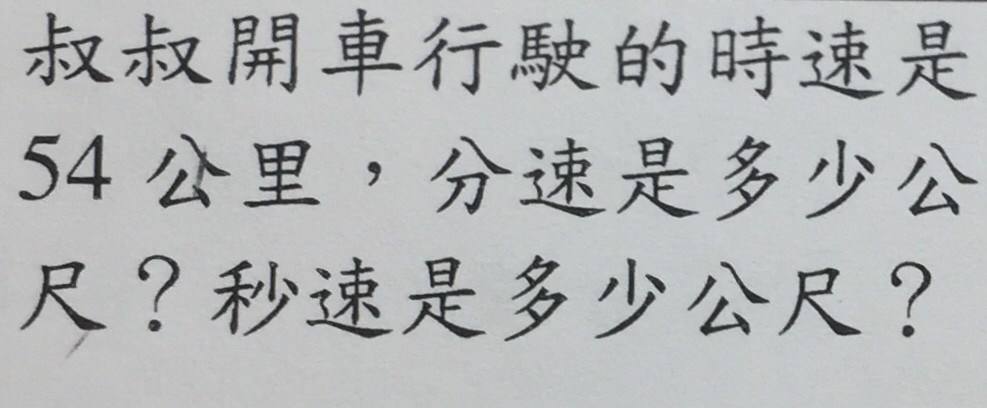 叔叔開車行駛的時速是
54 公里，分速是多少公
尺？秒速是多少公尺？